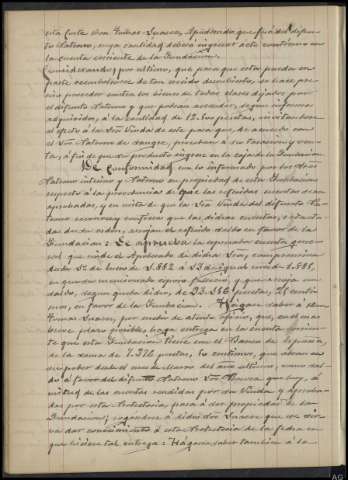 esta Corte Don Tomas Suarez, Apoderado que fué del difun-
to Patrono, cuya cantidad deberá ingresar acto continuo en
la cuenta corriente de la Fundacion:
Considerando; por ultimo, que, para que esta pueda en
parte reembolsarse de tan crecido descubierto, se hace pre-
ciso proceder contra los bienes de todas clases dejados por
el difunto Patrono y que podran ascender, segun informes
adquiridos, á la cantidad de 12.500 pesetas, invitandose
al efecto á la Sra Viuda de este para que, de acuerdo con
el Sor Patrono de sangre, procedan á su tasacion y ven-
ta, á fin de que su producto ingrese en la caja de la Fundacion:
De conformidad con lo informado por los Sres
Patrono interino y Patrono en propiedad de esta Fundacion
respecto á la procedencia de que las referidas cuentas sean
aprobadas, y en vista de que la Sra Viuda del difunto Pa-
trono reconoce y confiesa que las dichas cuentas, redacta-
das de su orden, arrojan el referido saldo en favor de la
Fundacion: Se aprueba la expresada cuenta gene-
ral que rinde el Apoderado de dicha Sra, comprensiva
desde 1º de Enero de 1.882 á 23 de igual mes de 1.888,
en que du mencionado esposo falleció, y que arroja un
saldo, segun queda dicho, de 23.388 pesetas, 28 centi-
mos, en favor de la Fundacion. Hágase saber á Don
Tomas Suarez, por medio de atento oficio, que, en el mas
breve plazo posible, haga entrega en la cuenta corrien-
te que esta Fundacion tiene con el Banco de España,
de la suma de 1.370 pesetas, 60 centimos, que obran en
su poder desde el mes de Enero del año ultimo, como sal-
do á favor del difunto Patrono Sor Herrera, que hoy, á
virtud de las cuentas rendidas por su Viuda y aproba-
das por este Protectoria, pasa á ser propiedad de la
Fundacion; rogandose á dicho Sor Suarez que se sir-
va dar conocimiento á este Protectoria de la fecha en
que hiciese tal entrega: Hágase saber tambien á la
AG